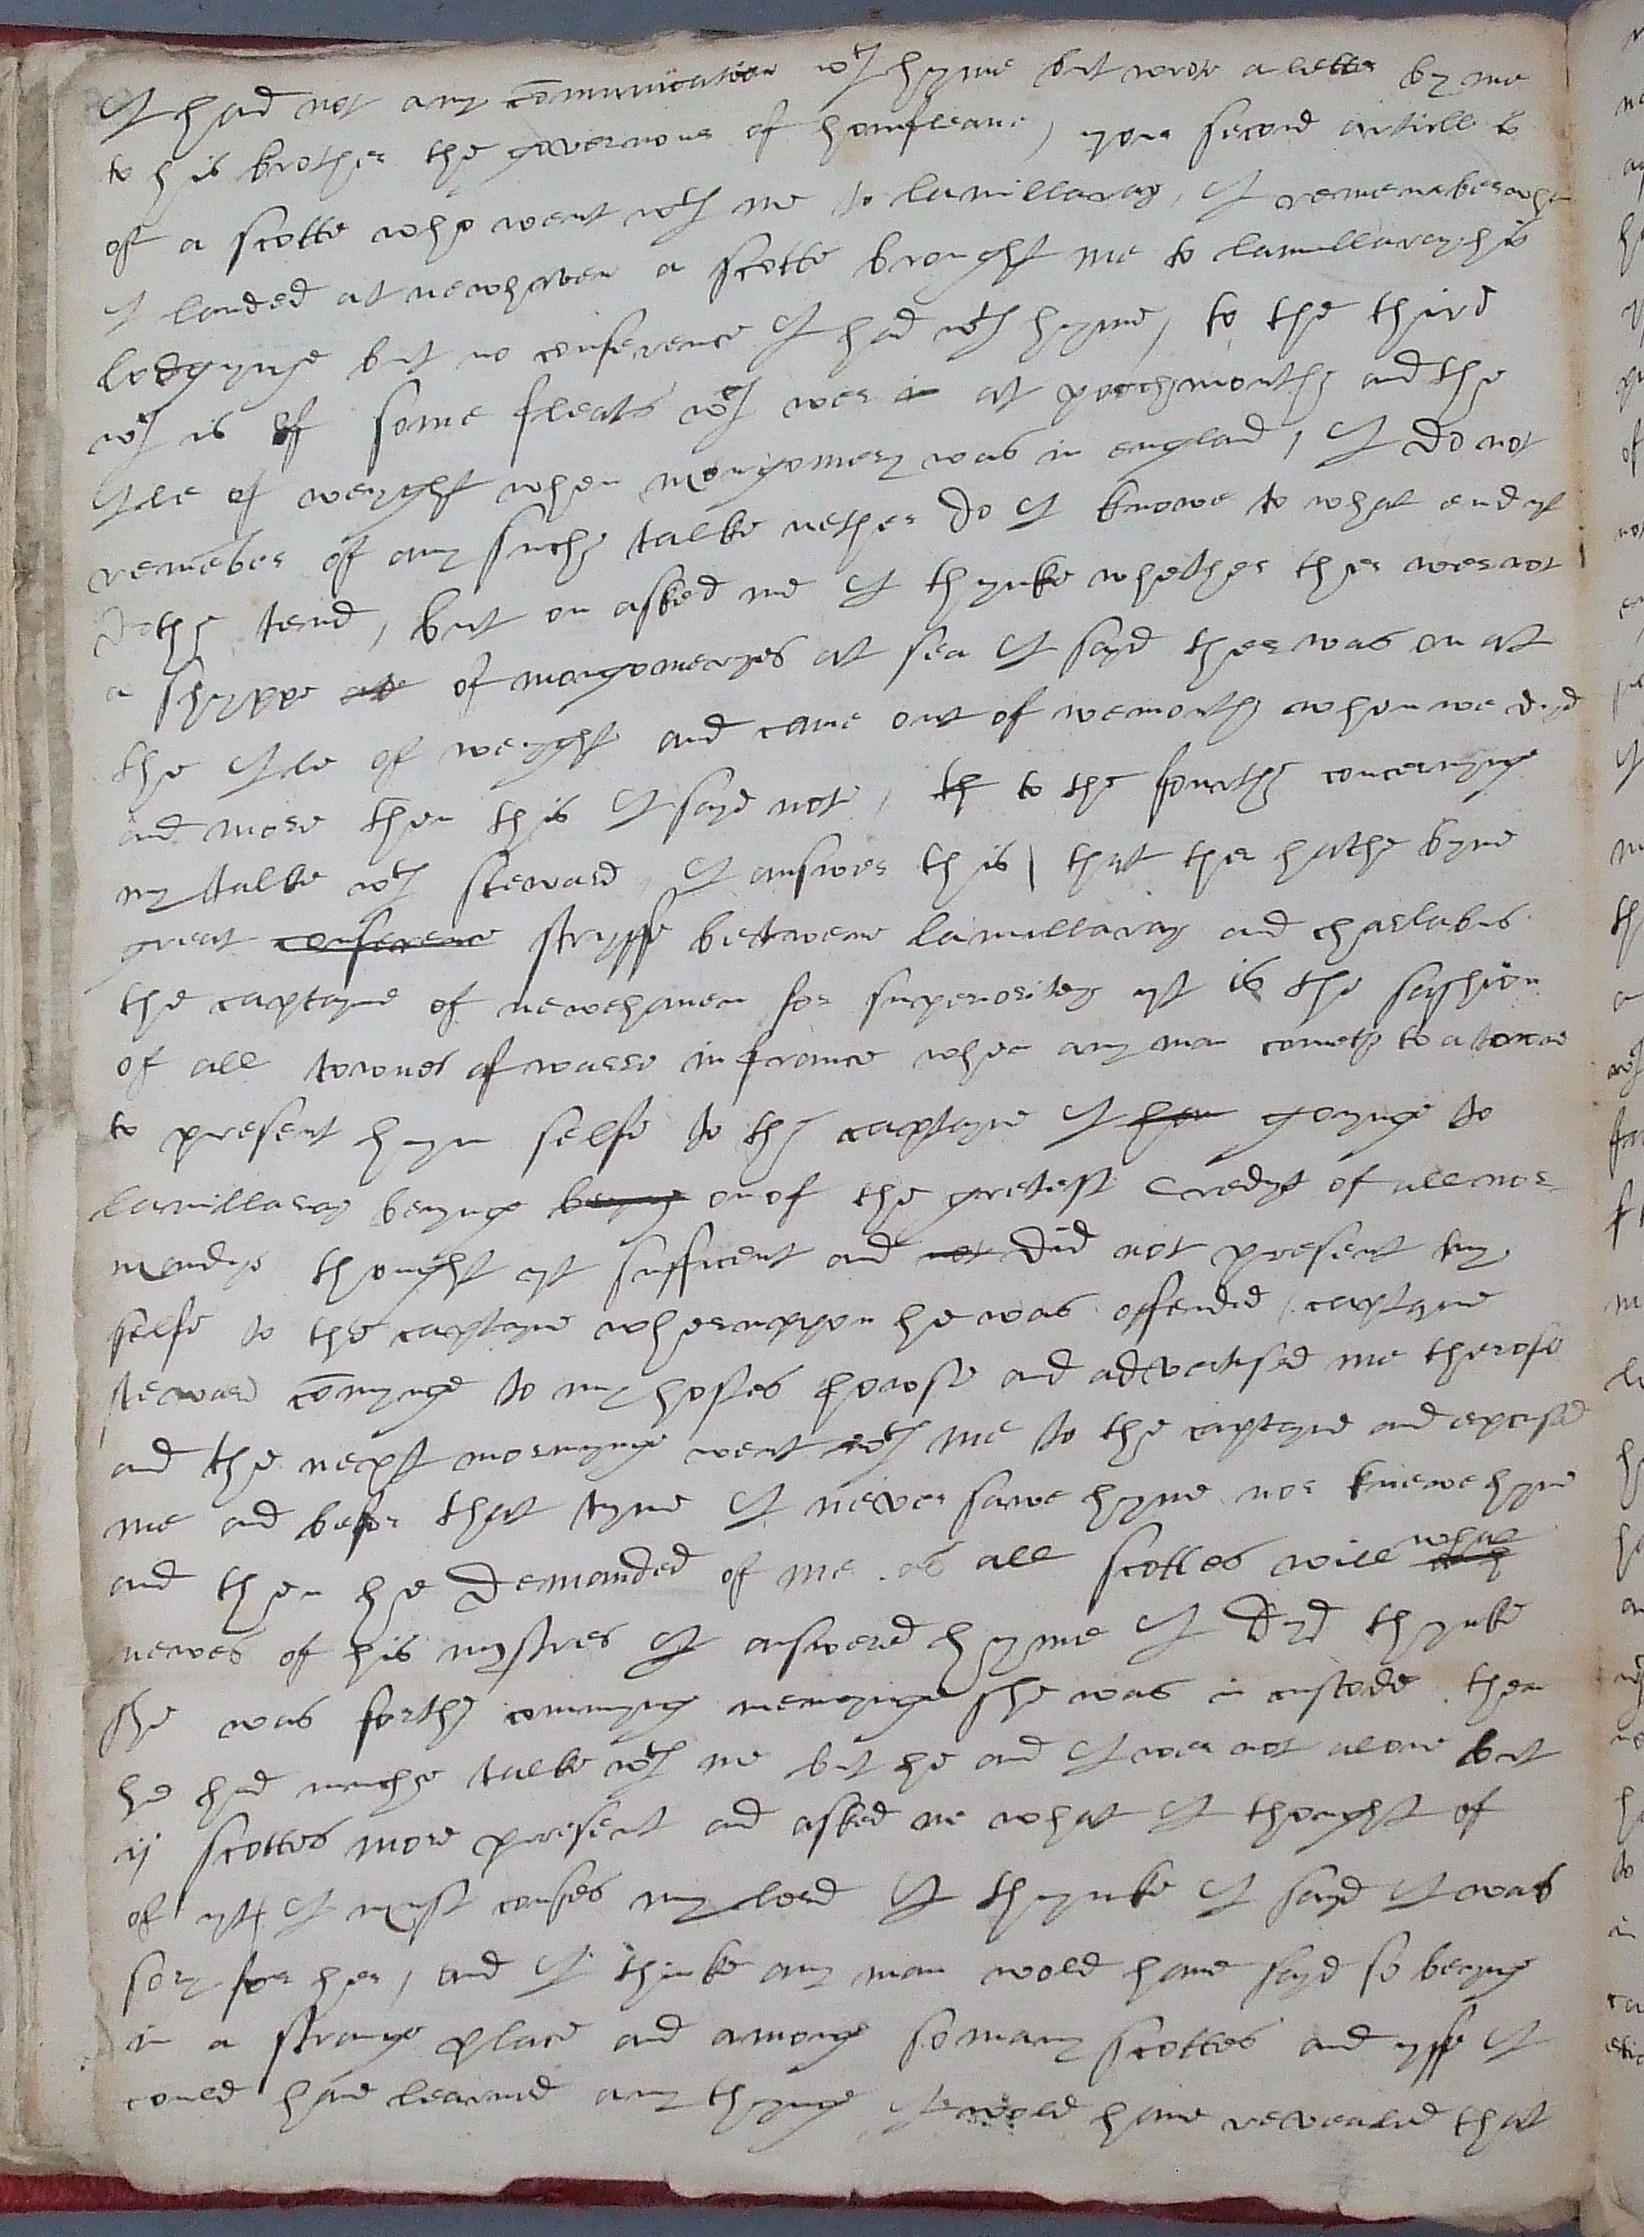 I had not any cōmunication wth hyme but wrote a letter by me
to his brother the governoue of honfleaue, your second article is
of a scotte who went wth me to lamillaray, I remember when
I landed at newhaven a scotte brought me to lamillaray his
lodgynge but no conference I had wth hyme, to the third
wch is of some fleats wch wer in at portchmouthe and the
Ile of weyght when mongomery was in englad, I do not
remēber of any suche talke nether do I knowe to what end yt
dothe tend, but on asked me I thynke whether ther wer not
a shyppe of mongomeryes at sea I sayd ther was on at
the Ile of weyght and came out of wemouthe when we dyd
and more then this I sayd not, th to the fourthe concernynge
my talke wth steward, I answer this, that ther hathe byne
great conference stryffe betwene lamillaray and charlabus
the captayne of newehaven for superioritey yt is the fasshion
of all townes of warre in france when any man comethe to a towne
to present hym selfe to the captayne I goynge to
lamillaray beynge beynge on of the gretest credyt of all nor
mendye thought yt sufficent and not did not present my
selfe to the captayne wheruppon he was offended, captayne
steward cōmynge to my hostes howse and advertised me therofe
and the next mornynge went wth me to the captayne and excused
me and befor that tyme I never sawe hyme nor knewe hyme
and then he demanded of me as all scottes will what
newes of his mystres I answered hyme I dyd thynke
she was forthe commynge menynge she was in custode. then
he had muche talke wth me but he and I wer not alone but
ij scottes more present and asked me what I thought of
of yt, I must confes my lord I thynke I sayd I was
sory for her, and I thinke any man wold have sayd so beynge
in a strange place and amonge so many scottes and yffe I
could have learned any thynge I wold have revealed that